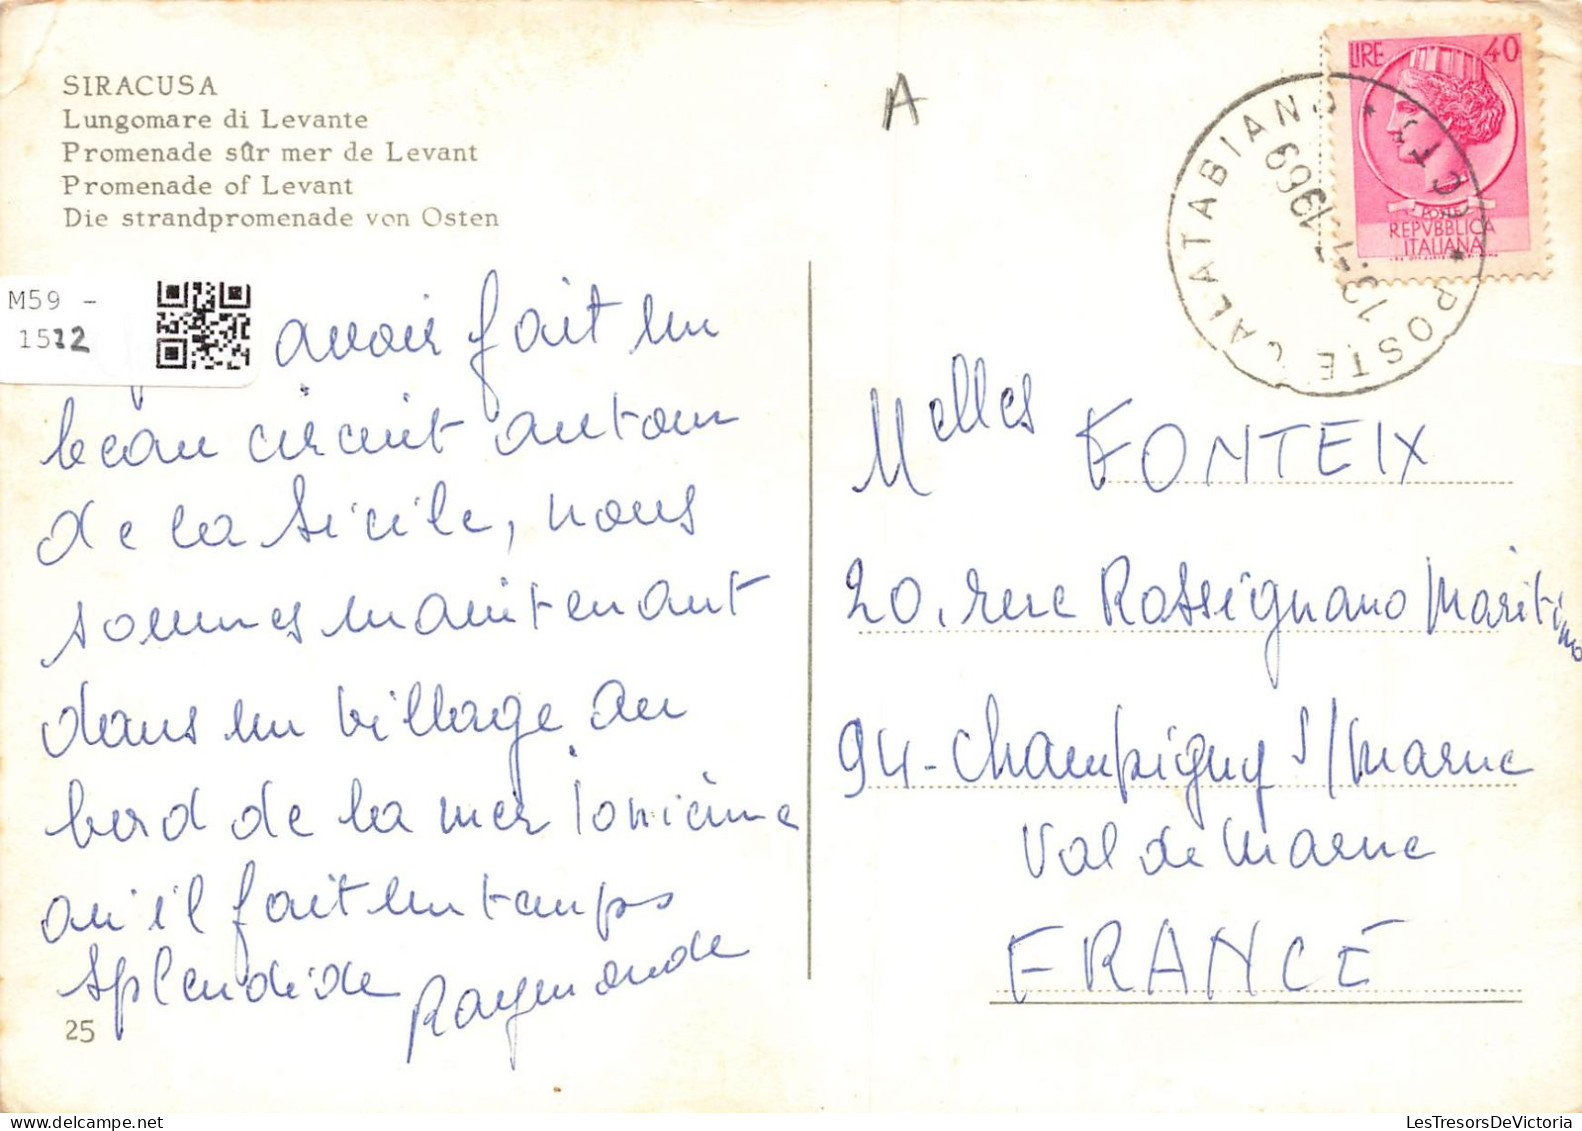 SIRACUSA
Lungomare di Levante
Promenade sûr mer de Levant
Promenade of Levant
Die strandpromenade von Osten
M59 -
1512
avoir fait un
beau circuit autour
de la Sicile, nous
sommes maintenant
dans un village au
bord de la mer Ionienne
où il fait un temps
splendide
Raymonde
25
A
LIRE 40
POSTE
REPVBBLICA
ITALIANA
POSTE CALATABIANO * (CT) *
13.7.1969
Melles FONTEIX
20, rue Rossignano Maritimo
94-Champigny s/Marne
Val de Marne
FRANCE
LesTresorsDeVictoria
delcampe.net